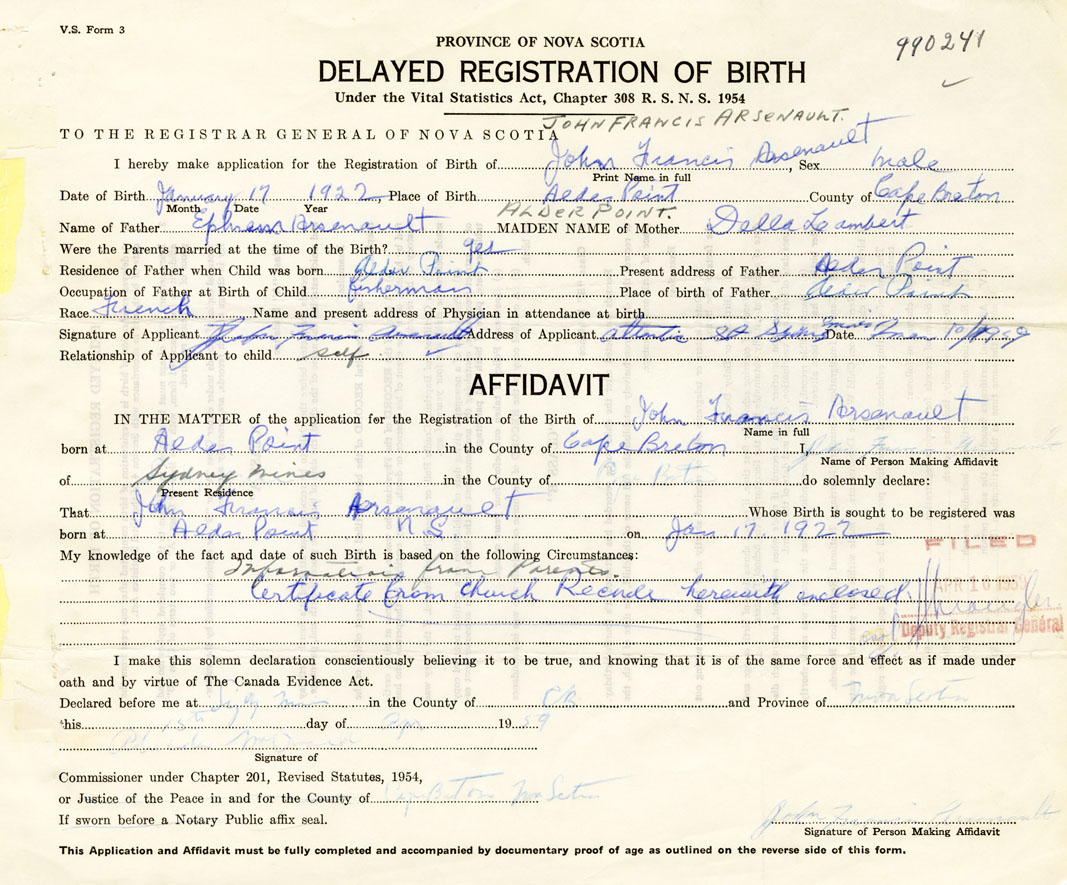 V.S. Form 3
990241
PROVINCE OF NOVA SCOTIA
DELAYED REGISTRATION OF BIRTH
Under the Vital Statistics Act, Chapter 308 R. S. N. S. 1954
JOHN FRANCIS ARSENAULT.
TO THE REGISTRAR GENERAL OF NOVA SCOTIA
I hereby make application for the Registration of Birth of John Francis Arsenault, Sex male
Print Name in full
Date of Birth January 17 1922, Place of Birth Alder Point County of Cape Breton
Month Date Year ALDER POINT.
Name of Father Ephrem Arsenault MAIDEN NAME of Mother Della Lambert
Were the Parents married at the time of the Birth? yes
Residence of Father when Child was born Alder Point Present address of Father Alder Point
Occupation of Father at Birth of Child fisherman Place of birth of Father Alder Point
Race French, Name and present address of Physician in attendance at birth
Signature of Applicant John Francis Arsenault Address of Applicant St Sydney Mines Date
Relationship of Applicant to child self
AFFIDAVIT
IN THE MATTER of the application for the Registration of the Birth of John Francis Arsenault
Name in full
born at Alder Point in the County of Cape Breton I, John Francis Arsenault
Name of Person Making Affidavit
of Sydney Mines in the County of Cape Breton do solemnly declare:
Present Residence
That John Francis Arsenault Whose Birth is sought to be registered was
born at Alder Point N.S. on Jan 17. 1922
My knowledge of the fact and date of such Birth is based on the following Circumstances:
Information from Parents.
Certificate from Church Records herewith enclosed.
FILED
APR 10 1959
Deputy Registrar General
I make this solemn declaration conscientiously believing it to be true, and knowing that it is of the same force and effect as if made under
oath and by virtue of The Canada Evidence Act.
Declared before me at Sydney Mines in the County of CB and Province of Nova Scotia
this day of Apr 1959
Signature of
Commissioner under Chapter 201, Revised Statutes, 1954,
or Justice of the Peace in and for the County of Cape Breton Nova Scotia
If sworn before a Notary Public affix seal.
John Francis Arsenault
Signature of Person Making Affidavit
This Application and Affidavit must be fully completed and accompanied by documentary proof of age as outlined on the reverse side of this form.